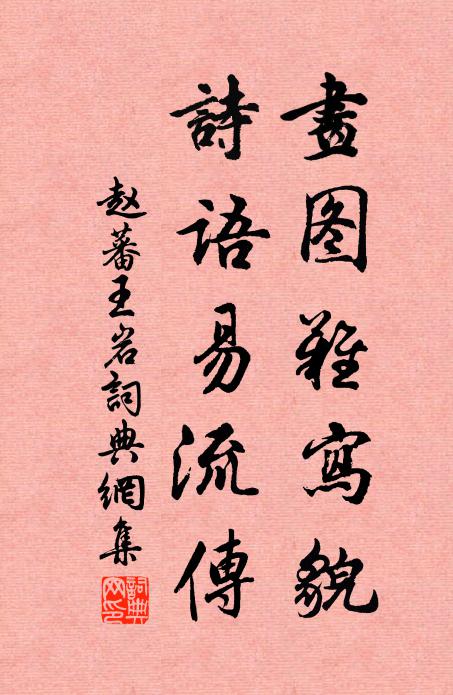 畫图難寫貌
詩語易流傳
赵蕃王岩詞典網集
詞典网印